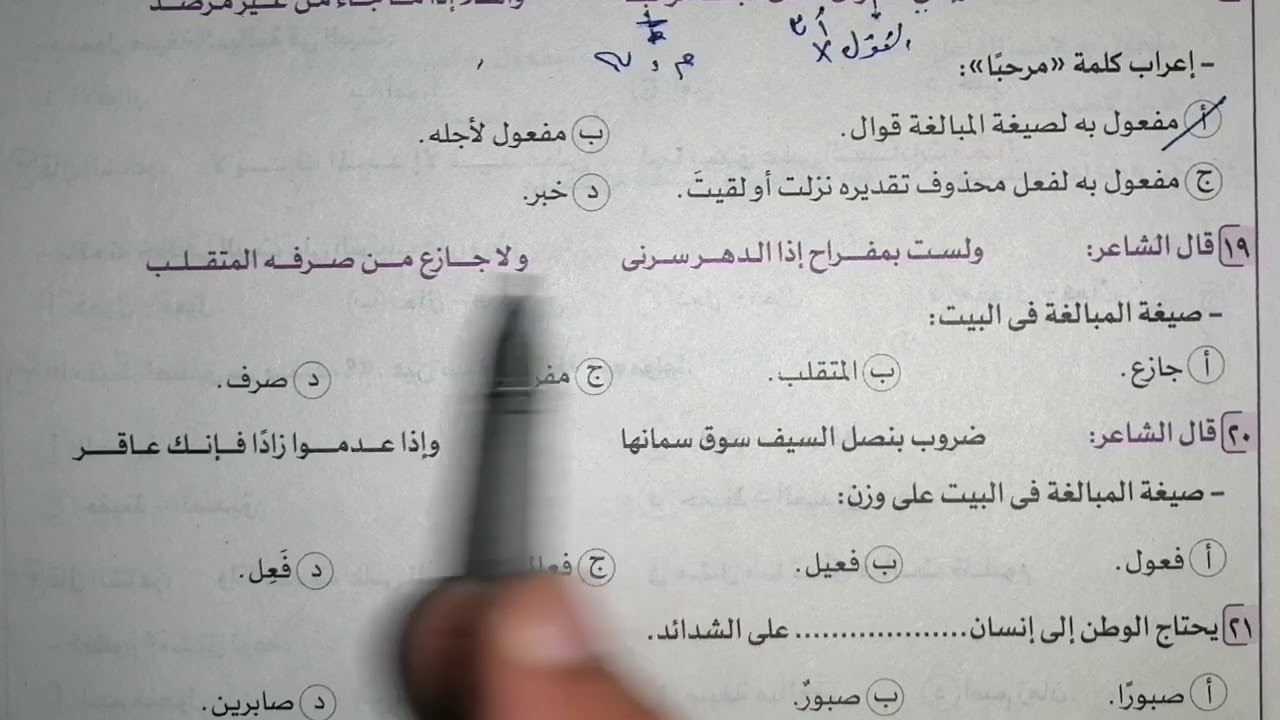 - إعراب كلمة «مرحبًا»:
أ مفعول به لصيغة المبالغة قوال. ب مفعول لأجله.
ج مفعول به لفعل محذوف تقديره نزلت أو لقيتَ. د خبر.
١٩ قال الشاعر: ولست بمفراح إذا الدهر سرنى ولا جازع من صرفه المتقلب
- صيغة المبالغة فى البيت:
أ جازع. ب المتقلب. ج د صرف.
٢٠ قال الشاعر: ضروب بنصل السيف سوق سمانها وإذا عدموا زادًا فإنك عاقر
- صيغة المبالغة فى البيت على وزن:
أ فعول. ب فعيل. ج د فَعِل.
٢١ يحتاج الوطن إلى إنسان ................... على الشدائد.
أ صبورًا. ب صبورٌ. د صابرين.